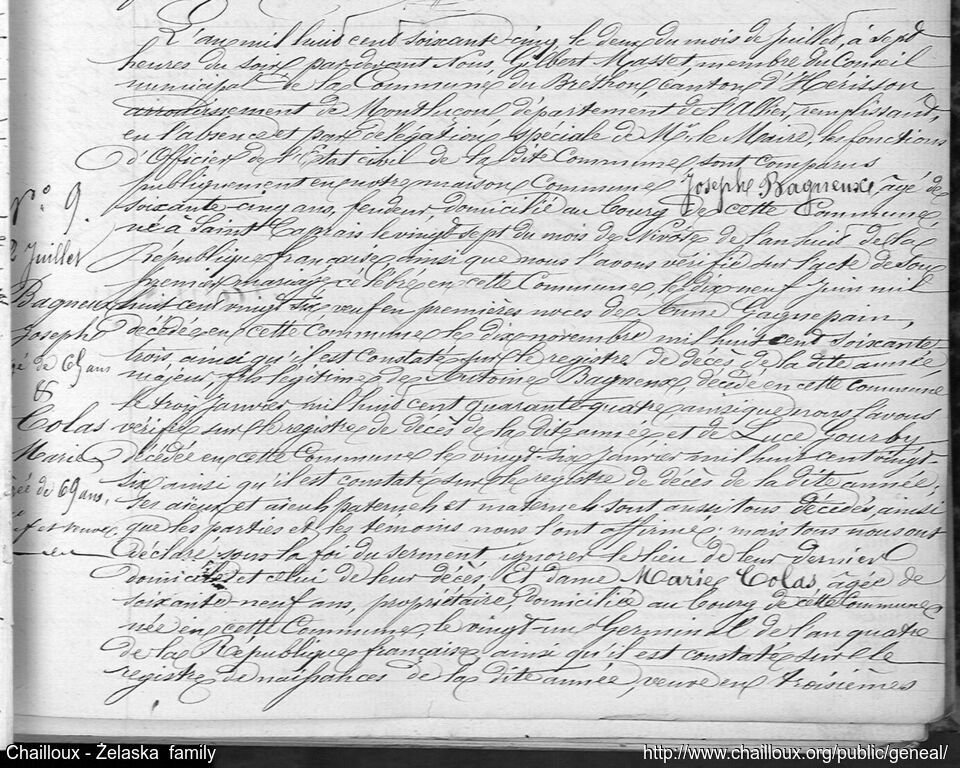 L'an mil huit cent soixante cinq le deux du mois de Juillet, à sept
heures du soir, par devant Nous Gilbert Masset, membre du Conseil
municipal de la Commune du Brethon, canton d'Hérisson
arrondissement de Montluçon, département de l'Allier, remplissant,
en l'absence et par délégation spéciale de Mr. le Maire, les fonctions
d'Officier de l'Etat civil de la dite Commune, sont comparus
publiquement en notre maison Commune, Joseph Bagneux, âgé de
soixante-cinq ans, fendeur, domicilié au bourg de cette Commune,
né à Saint Caprais le vingt sept du mois de Nivôse de l'an huit de la
République française ainsi que nous l'avons vérifié sur l'acte de son
premier mariage célébré en cette Commune, le dix neuf Juin mil
huit cent vingt six veuf en premières noces de Anne Gagnepain,
décédée en cette commune le dix novembre mil huit cent soixante
trois, ainsi qu'il est constaté sur le registre de décès de la dite année
majeur, fils légitime de Antoine Bagneux, décédé en cette commune
le trois janvier mil huit cent quarante quatre ainsi que nous l'avons
vérifié sur le registre de décès de la dite année et de Luce Gourby
décédée en cette Commune le vingt six janvier mil huit cent vingt-
six ainsi qu'il est constaté sur le registre de décès de la dite année,
ses aïeux et aïeules paternels et maternels sont aussi tous décédés, ainsi
que les parties et les témoins nous l'ont affirmé, mais tous nous ont
déclaré, sous la foi du serment, ignorer le lieu de leur dernier
domicile et celui de leur décès. Et dame Marie Colas âgée de
soixante-neuf ans, propriétaire, domiciliée au bourg de cette Commune,
née en cette Commune, le vingt-un Germinal de l'an quatre
de la République française ainsi qu'il est constaté sur le
registre de naissances de la dite année, veuve en troisièmes
No. 9.
2 Juillet
Bagneux
Joseph
é de 65 ans
&
Colas
Marie
ée de 69 ans,
f et veuve
Chailloux - Żelaska family
http://www.chailloux.org/public/geneal/